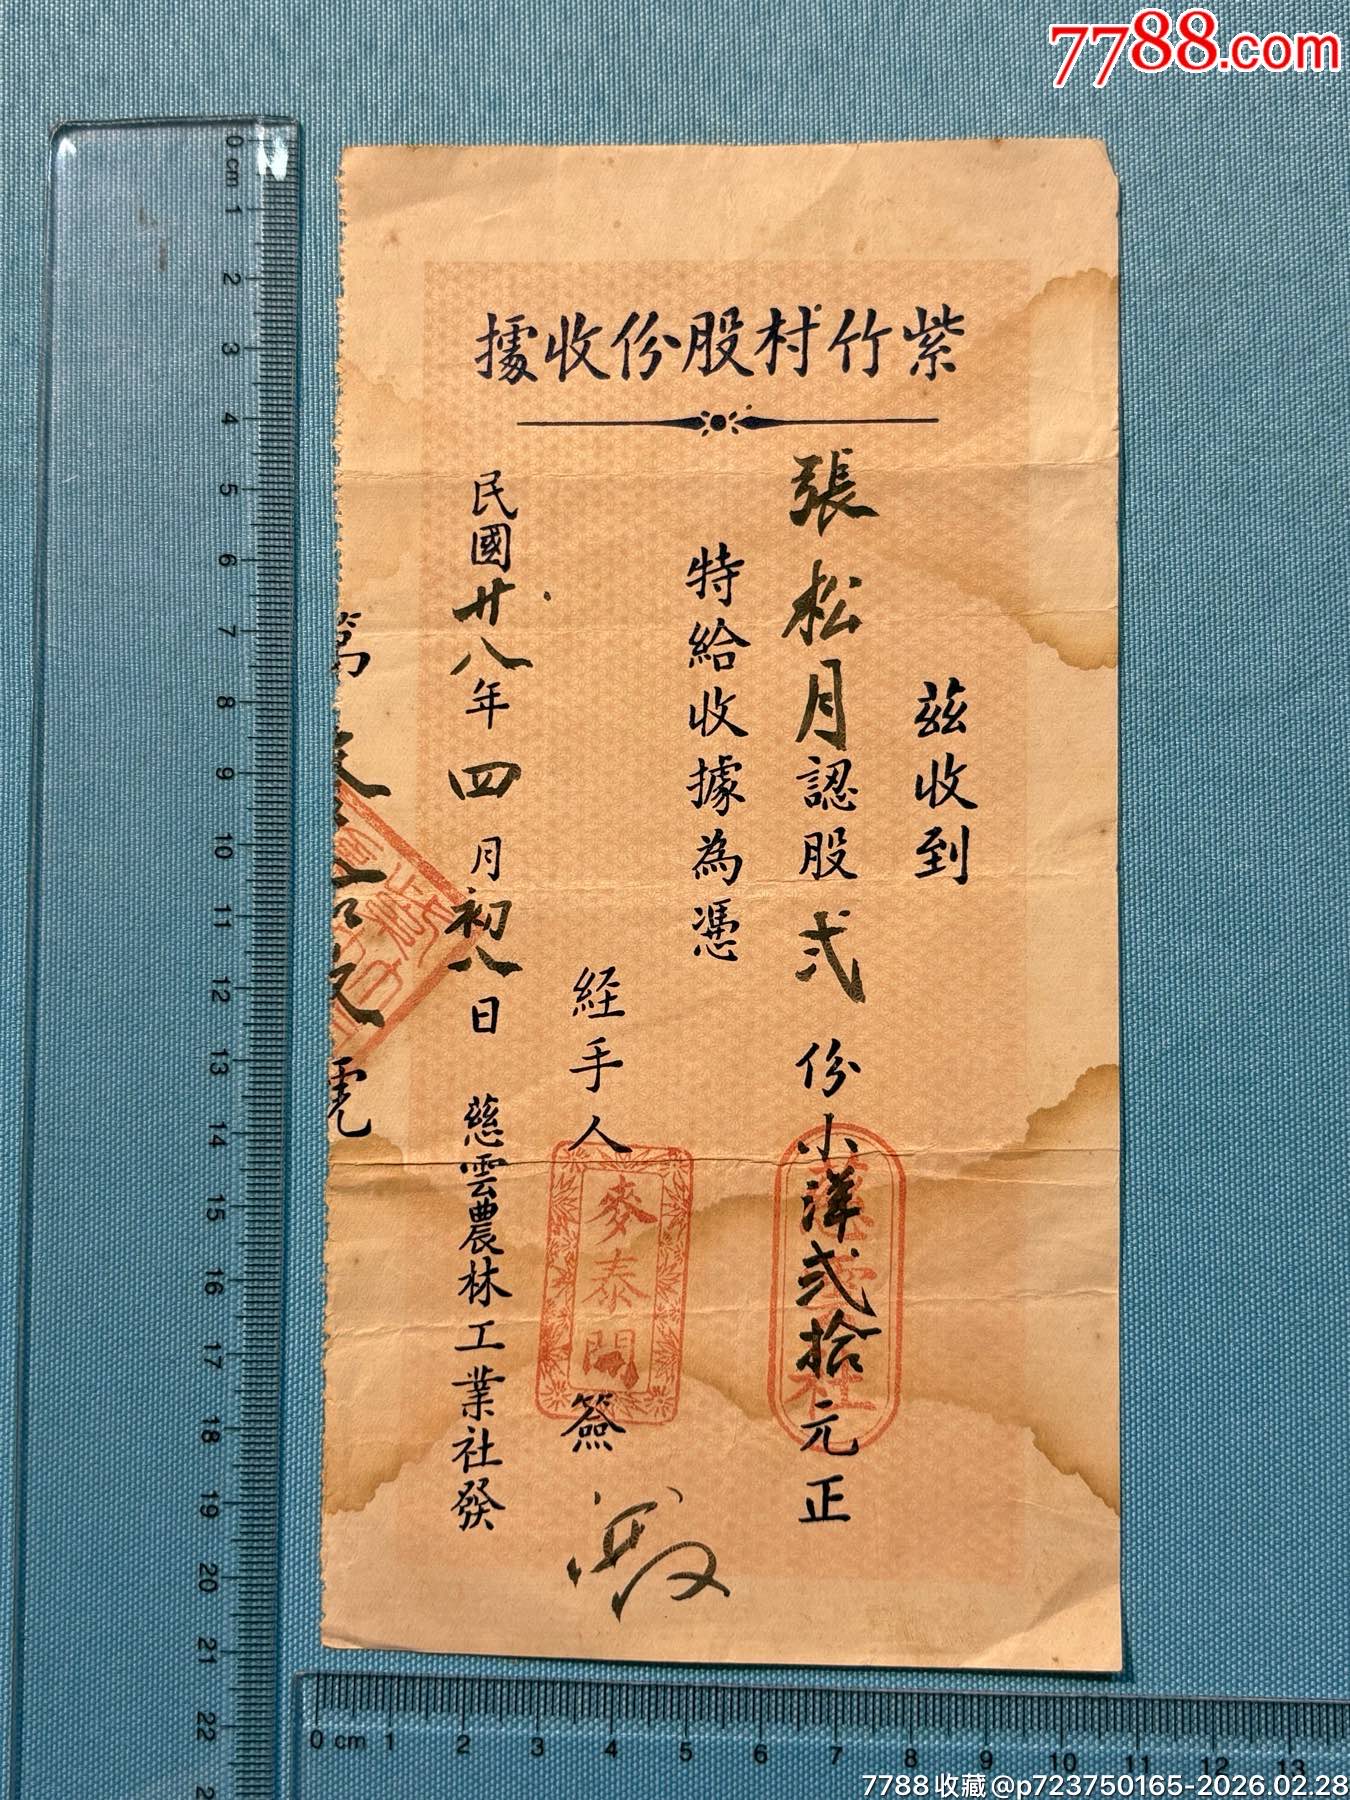 7788.com
紫竹村股份收據
茲收到
張松月認股弍份小洋弍拾元正
特給收據為憑
経手人
麥泰開
簽
民國廿八年四月初八日
慈雲農林工業社發
慈雲社
號
0 cm 1 2 3 4 5 6 7 8 9 10 11 12 13 14 15 16 17 18 19 20 21 22
0 cm 1 2 3 4 5 6 7 8 9 10 11 12 13
7788收藏@p723750165-2026.02.28